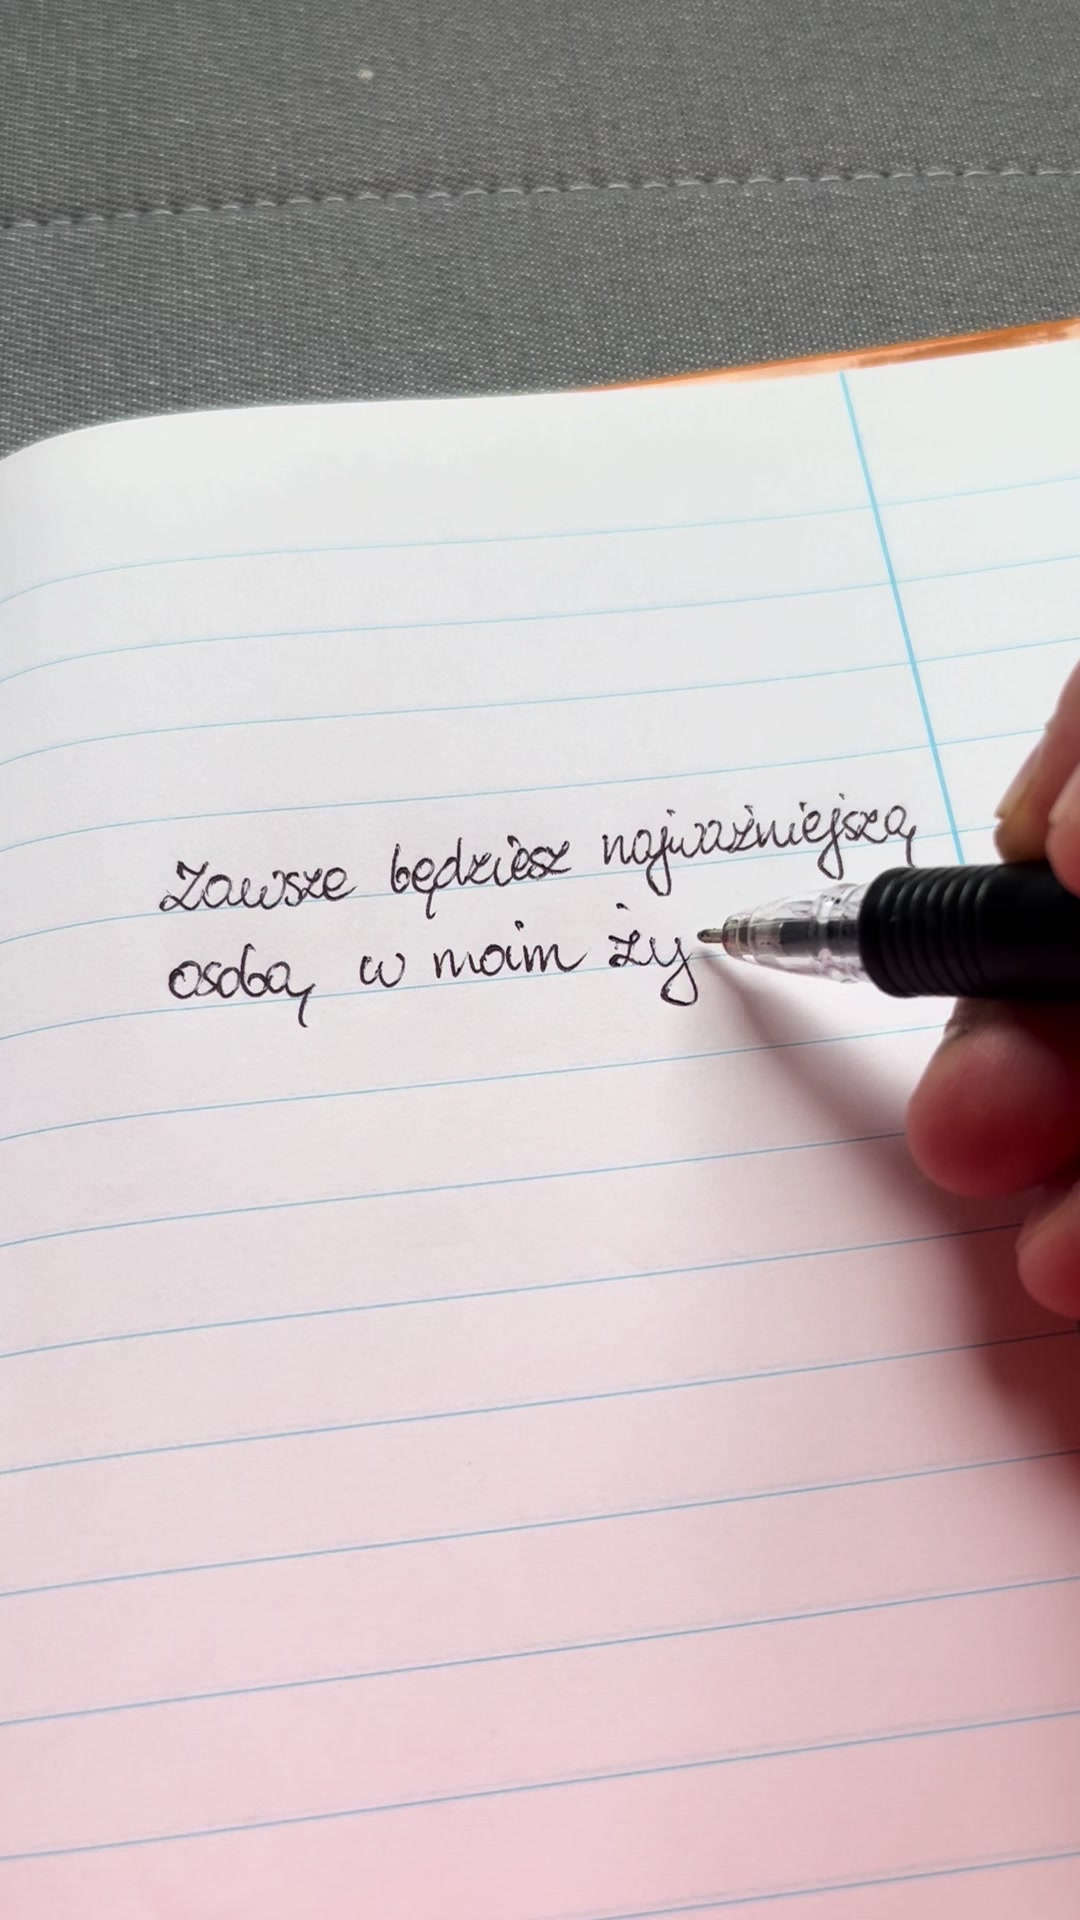 Zawsze będziesz najważniejszą
osobą w moim ży